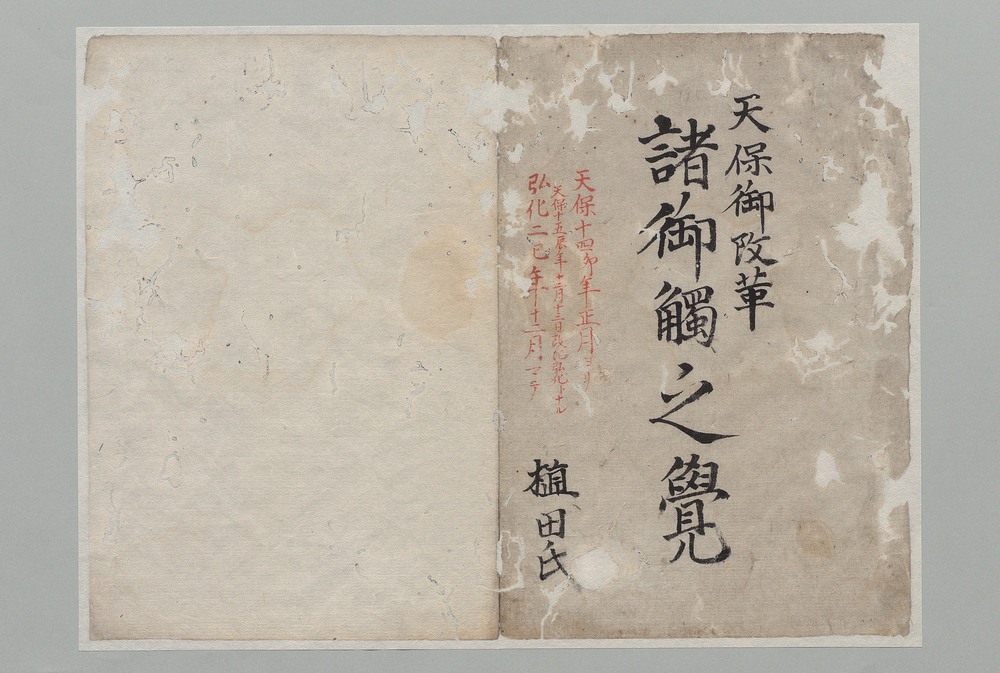 天保御改革
諸御觸之覺
天保十四卯年正月ヨリ
天保十五辰年十二月十三日改元弘化ト十ル
弘化二巳年十二月マテ
植田氏